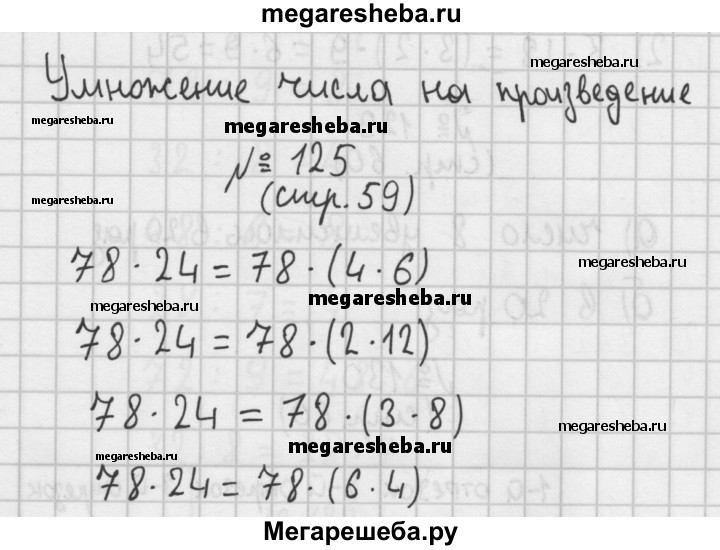 megaresheba.ru
megaresheba.ru
Умножение числа на произведение
megaresheba.ru
megaresheba.ru
№ 125
megaresheba.ru
(стр. 59)
78 · 24 = 78 · (4 · 6)
megaresheba.ru
megaresheba.ru
megaresheba.ru
78 · 24 = 78 · (2 · 12)
78 · 24 = 78 · (3 · 8)
megaresheba.ru
megaresheba.ru
megaresheba.ru
78 · 24 = 78 · (6 · 4)
Мегарешеба.ру